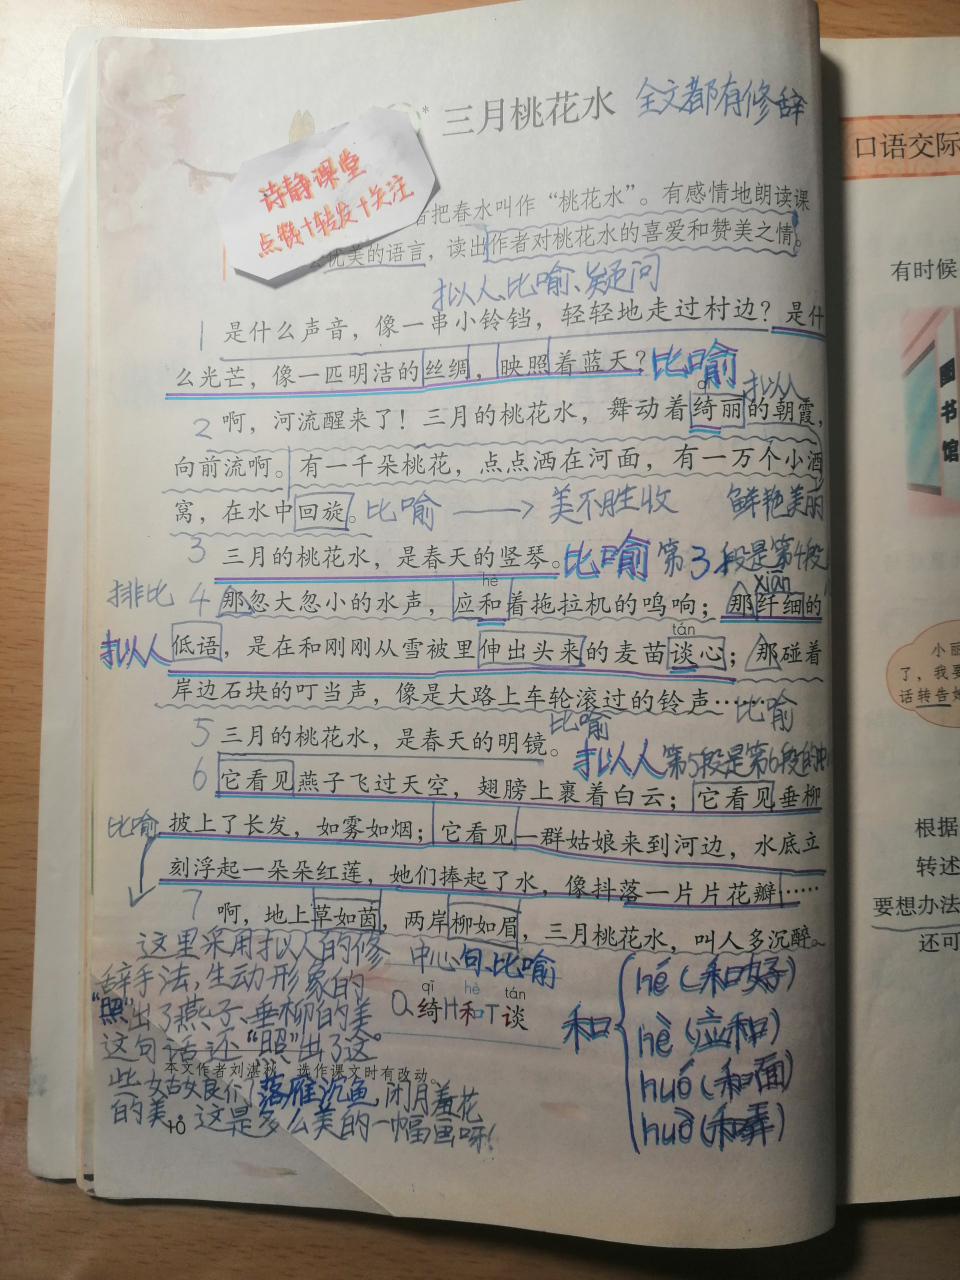 三月桃花水
全文都有修辞
诗静课堂
点赞+转发+关注
者把春水叫作“桃花水”。有感情地朗读课
优美的语言，读出作者对桃花水的喜爱和赞美之情。
拟人、比喻、疑问
1 是什么声音，像一串小铃铛，轻轻地走过村边？是什
么光芒，像一匹明洁的丝绸，映照着蓝天？比喻
拟人
qǐ
2 啊，河流醒来了！三月的桃花水，舞动着绮丽的朝霞，
向前流啊。有一千朵桃花，点点洒在河面，有一万个小酒
窝，在水中回旋。比喻 → 美不胜收 鲜艳美丽
3 三月的桃花水，是春天的竖琴。比喻 第3段是第4段
hè xiān
排比 4 那忽大忽小的水声，应和着拖拉机的鸣响；那纤细的
tán
拟人 低语，是在和刚刚从雪被里伸出头来的麦苗谈心；那碰着
岸边石块的叮当声，像是大路上车轮滚过的铃声……
比喻 比喻
5 三月的桃花水，是春天的明镜。
拟人 第5段是第6段的
6 它看见燕子飞过天空，翅膀上裹着白云；它看见垂柳
比喻 披上了长发，如雾如烟；它看见一群姑娘来到河边，水底立
刻浮起一朵朵红莲，她们捧起了水，像抖落一片片花瓣……
7 啊，地上草如茵，两岸柳如眉，三月桃花水，叫人多沉醉。
中心句、比喻
这里采用拟人的修
辞手法，生动形象的
“照”出了燕子、垂柳的美
这句话还“照”出了这
些姑娘们落雁沉鱼，闭月羞花
的美。这是多么美的一幅画呀！
qǐ hè tán
Q绮H和T谈
和
hé（和好）
hè（应和）
huó（和面）
huò（和弄）
本文作者刘湛秋，选作课文时有改动。
10
口语交际
有时候
图书馆
小丽
了，我要
话转告
根据
转述
要想办法
还可